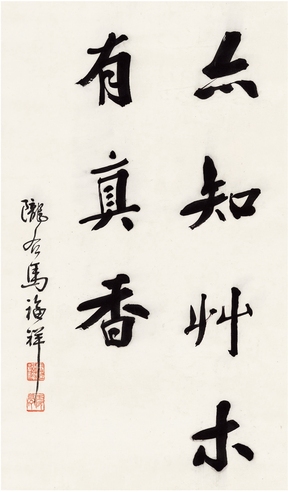 亦知艸木
有真香
隴右馬福祥